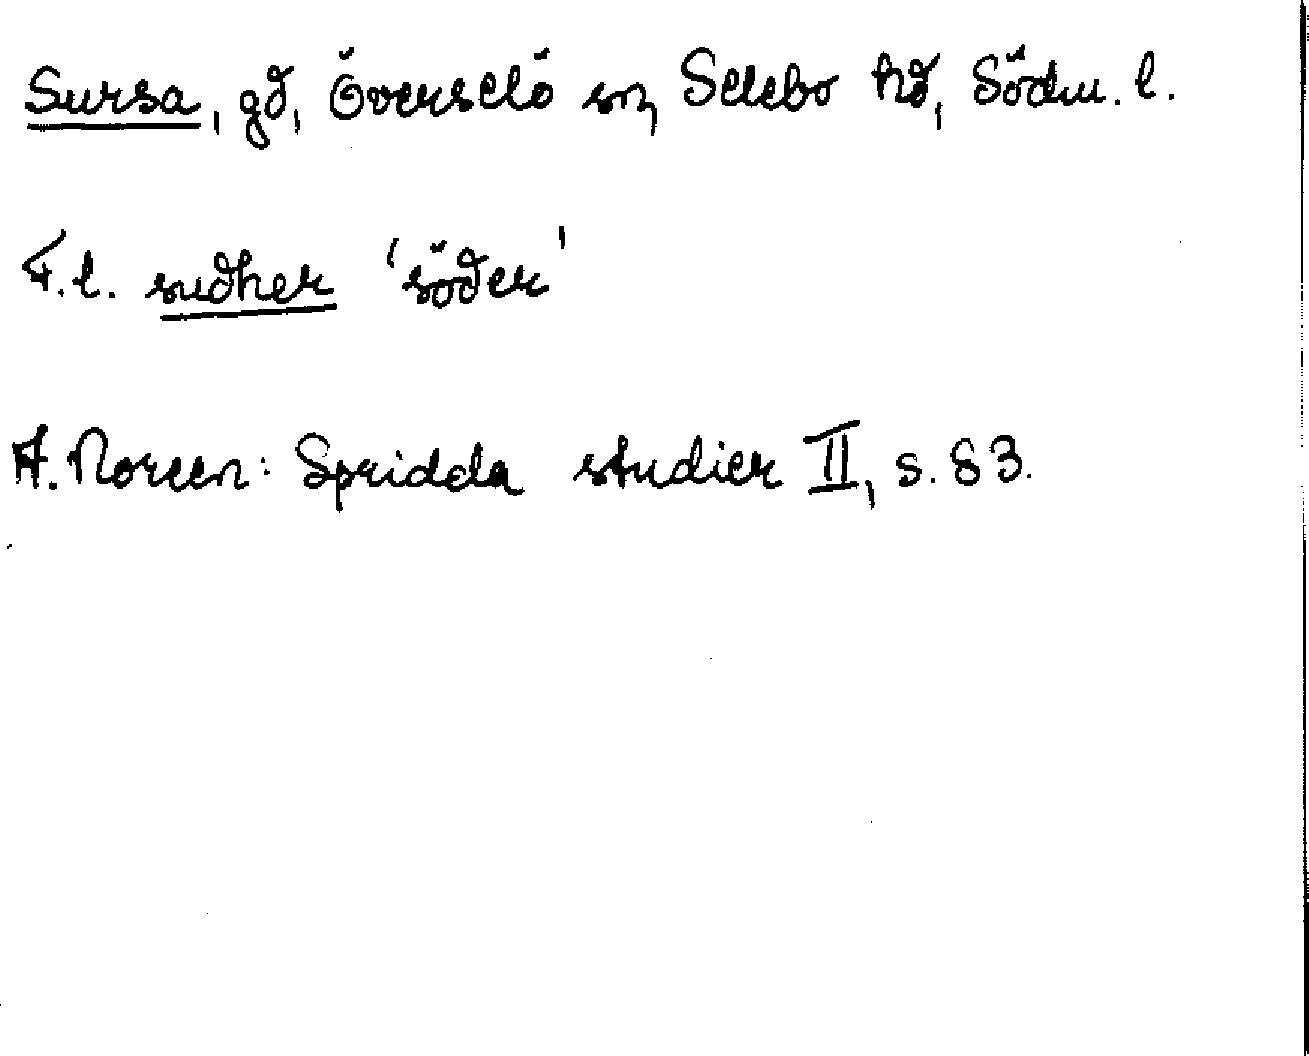 Sursa, gd, Överselö sn, Selebo hd, Södm. l.
F.l. sudher 'söder'
A. Noreen: Spridda studier II, s. 83.